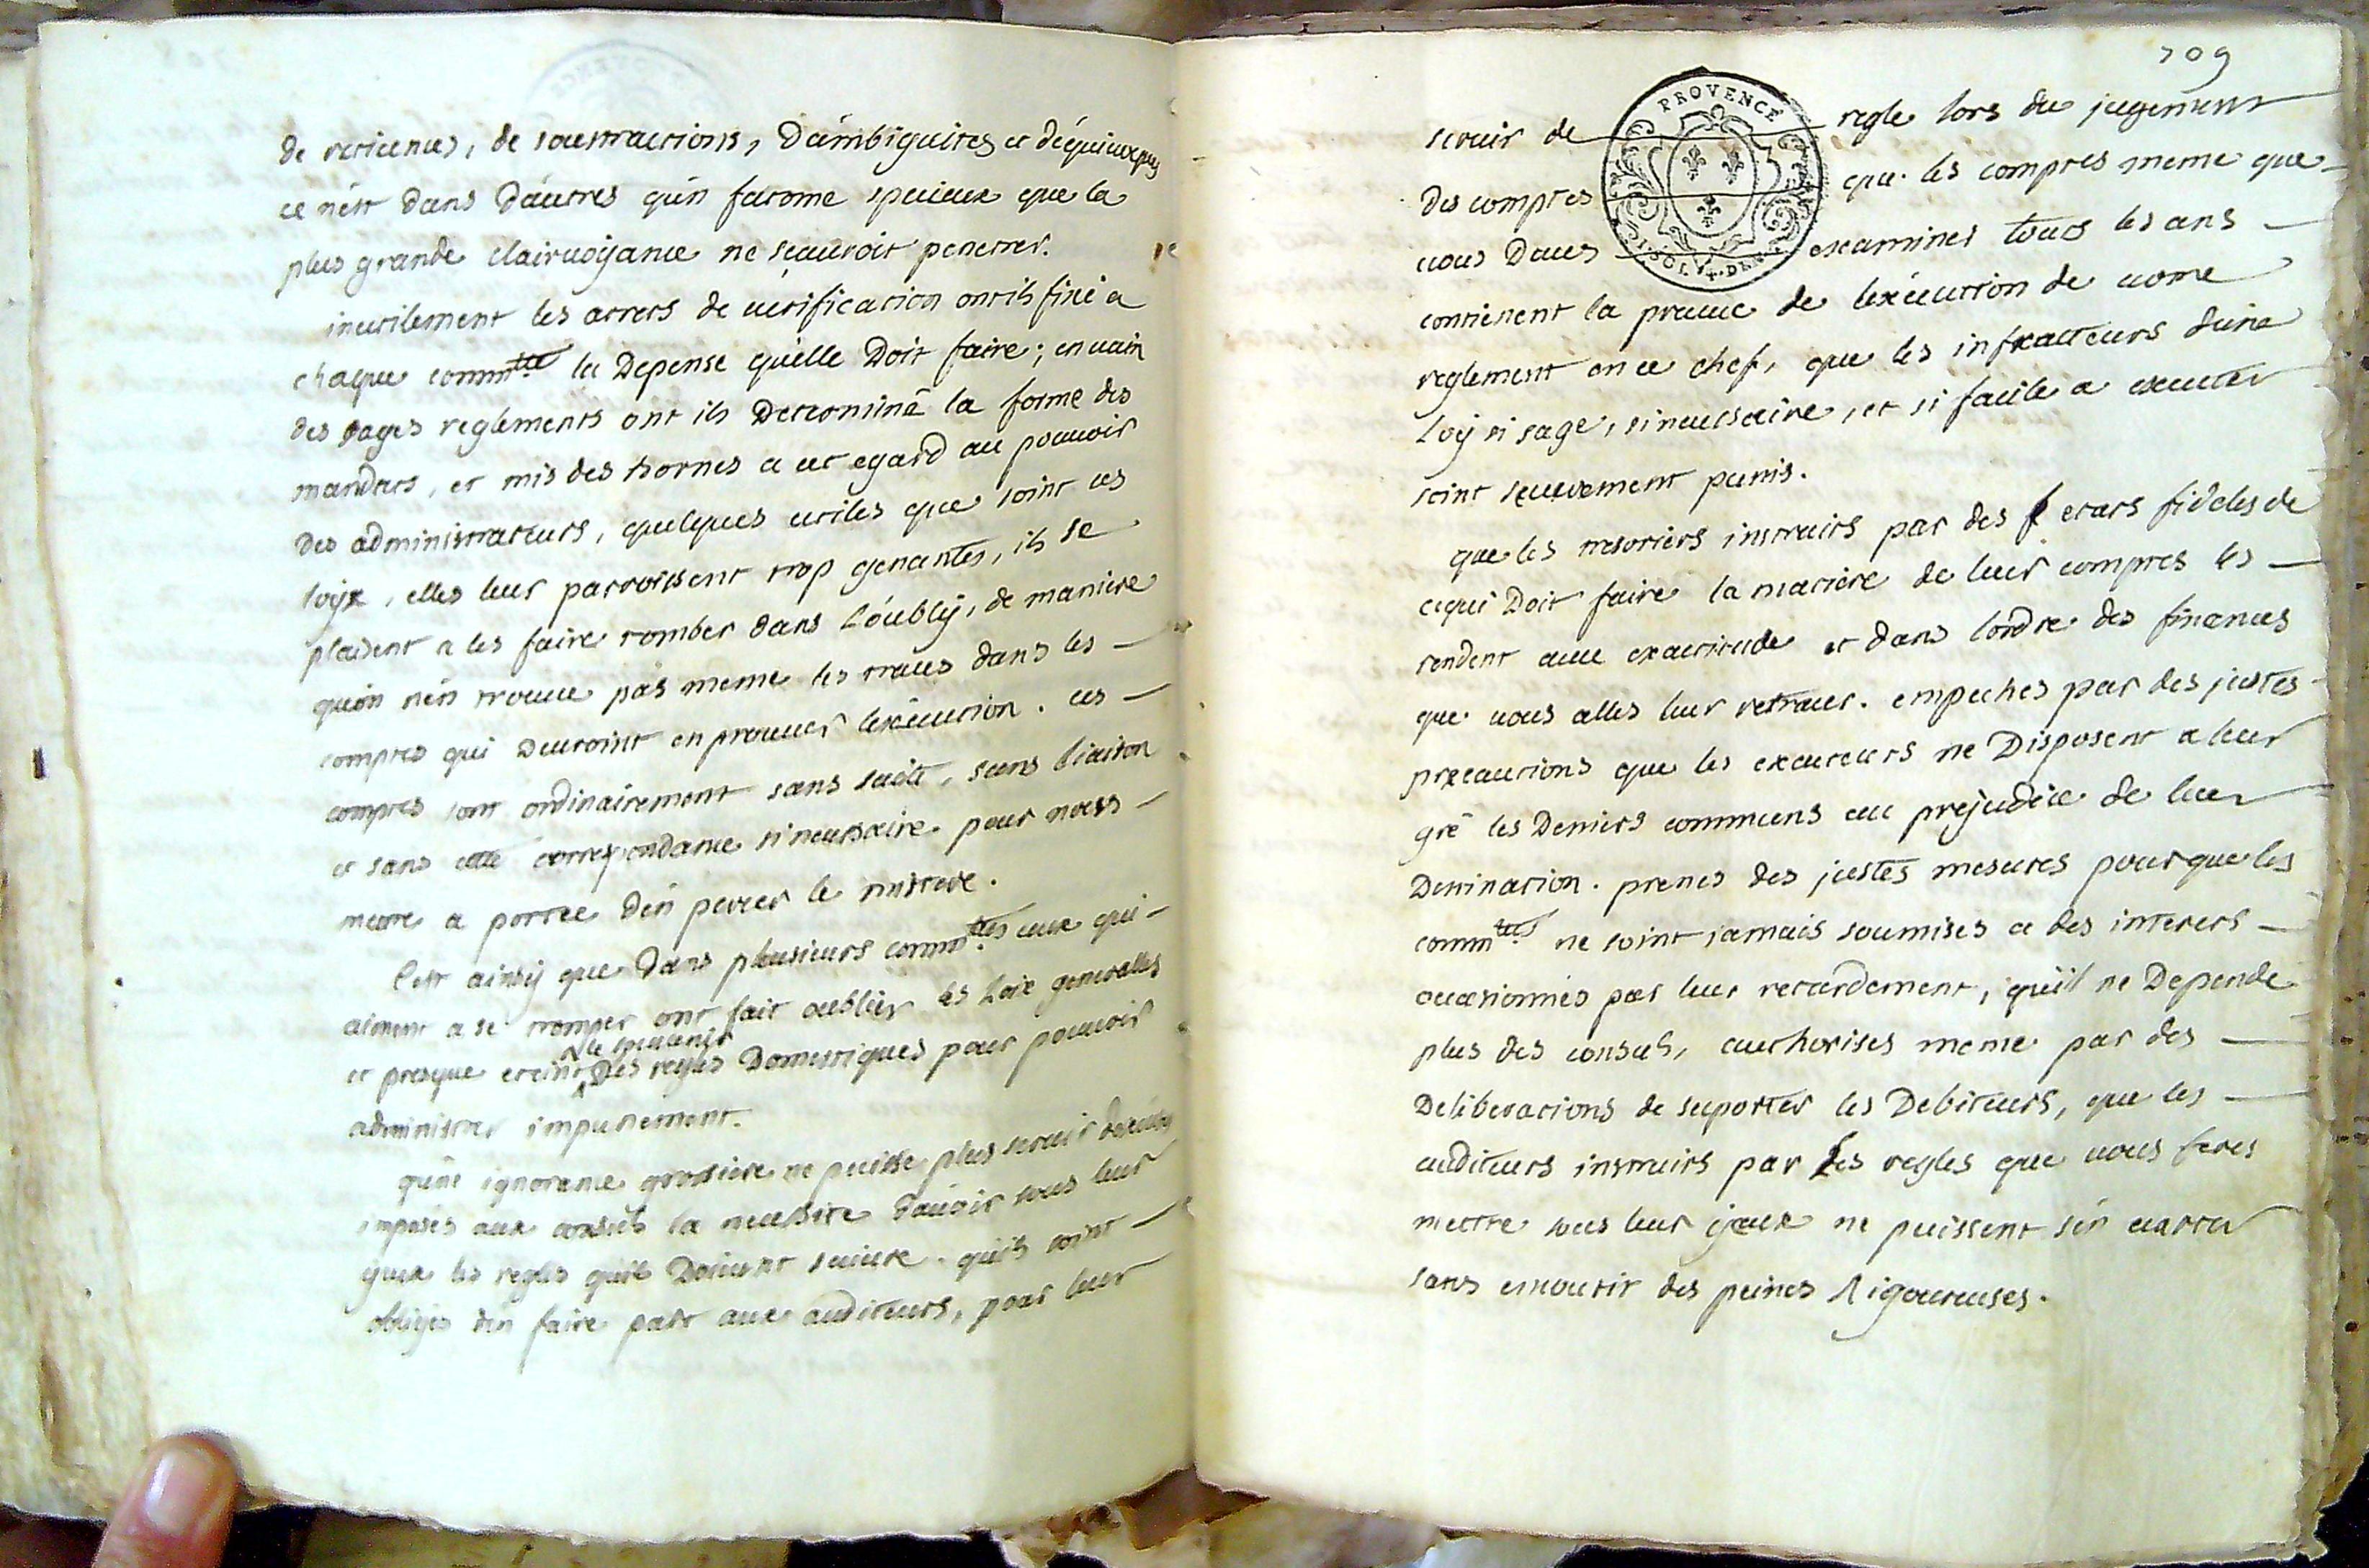 de reticences, de soustractions, d'ambiguites et d'equivoques
ce n'est dans d'autres qu'un fatome specieux que la
plus grande clairvoyance ne sçauroit penetrer.
inutilement les arrets de verification ont ils fixé a
chaque comm.té la depense qu'elle doit faire; en vain
des sages reglements ont ils determiné la forme des
mandats, et mis des bornes a cet egard au pouvoir
des administrateurs, quelques utiles que soint ces
loyx, elles leur parroissent trop genantes, ils se
plaisent a les faire tomber dans l'oubly, de maniere
qu'on n'en trouve pas meme les traces dans les
comptes qui devroint en prouver l'exécution. ces
comptes sont ordinairement sans suite, sans liaison
et sans cette correspondance si necessaire pour nous
mettre a portée d'en percer le mistere.
C'est ainsy que dans plusieurs comm.tés ceux qui
aiment a se tromper ont fait oublier les Loix generalles
et presque eteint le souvenir des regles domestiques pour pouvoir
administrer impunement.
qu'une ignorance grossiere ne puisse plus servir d'excuse
imposés aux consuls la necessité d'avoir sous leur
yeux les regles qu'ils doivent suivre. qu'ils soint
obligés d'en faire part aux auditeurs, pour leur
709
servir de regle lors du jugement
des comptes que les comptes meme que
vous devés examiner tous les ans
contienent la preuve de l'exécution de votre
reglement en ce chef, que les infracteurs d'une
loy si sage, si necessaire, et si facile a executer
soint severement punis.
que les tresoriers instruits par des etats fideles de
ce qui doit faire la matiere de leur comptes les
rendent avec exactitude et dans l'ordre des finances
que vous allés leur retracer. empechés par des justes
precautions que les exacteurs ne disposent a leur
gré les deniers communs au prejudice de leur
destination. prenés des justes mesures pour que les
comm.tés ne soint jamais soumises a des interets
occasionnés par leur retardement, qu'il ne depende
plus des consuls, authorisés meme par des
deliberations de suporter les debiteurs, que les
auditeurs instruits par Les regles que vous ferés
mettre sous leur yeux ne puissent s'en ecarter
sans encourir des peines Rigoureuses.
PROVENCE